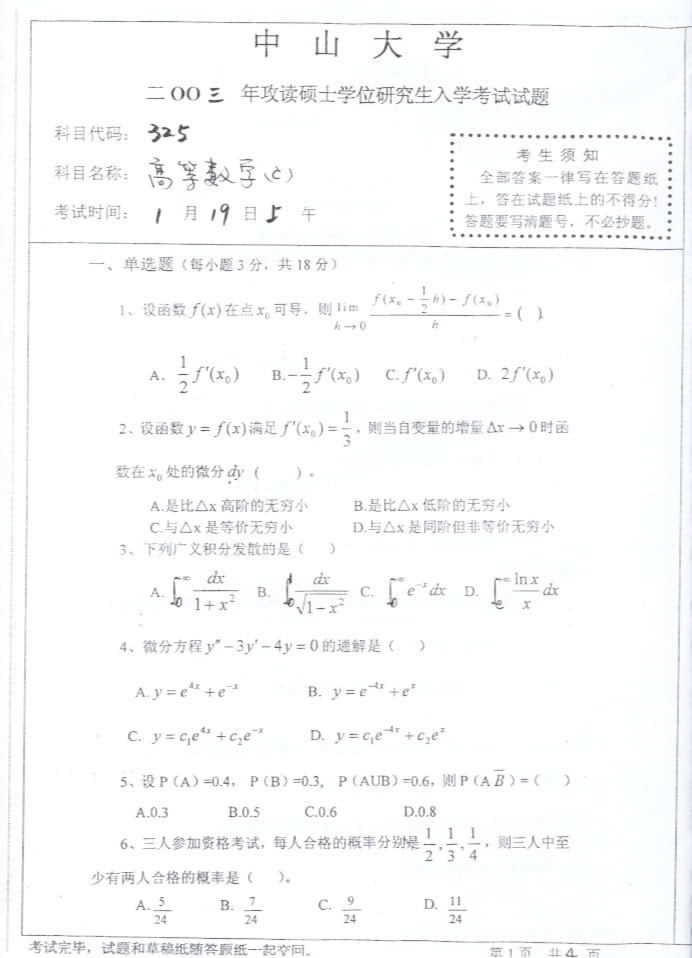 中 山 大 学
二OO三 年攻读硕士学位研究生入学考试试题
科目代码: 325
科目名称: 高等数学(C)
考试时间: 1 月 19 日 上 午
考 生 须 知
全部答案一律写在答题纸
上,答在试题纸上的不得分!
答题要写清题号,不必抄题。
一、单选题(每小题 3 分,共 18 分)
1、设函数 f(x) 在点 x₀ 可导,则 lim_{h→0} [f(x₀ - 1/2 h) - f(x₀)]/h = ( )
A. 1/2 f′(x₀) B. -1/2 f′(x₀) C. f′(x₀) D. 2f′(x₀)
2、设函数 y = f(x) 满足 f′(x₀) = 1/3,则当自变量的增量 Δx → 0 时函
数在 x₀ 处的微分 dy ( )。
A.是比△x 高阶的无穷小 B.是比△x 低阶的无穷小
C.与△x 是等价无穷小 D.与△x 是同阶但非等价无穷小
3、下列广义积分发散的是( )
A. ∫₀^{+∞} dx/(1+x²) B. ∫₀^1 dx/√(1-x²) C. ∫₀^{+∞} e^{-x} dx D. ∫_e^{+∞} (ln x)/x dx
4、微分方程 y″ - 3y′ - 4y = 0 的通解是( )
A. y = e^{4x} + e^{-x} B. y = e^{-4x} + e^x
C. y = c₁e^{4x} + c₂e^{-x} D. y = c₁e^{-4x} + c₂e^x
5、设 P(A)=0.4, P(B)=0.3, P(AUB)=0.6,则 P(A B̅)=( )
A.0.3 B.0.5 C.0.6 D.0.8
6、三人参加资格考试,每人合格的概率分别是 1/2, 1/3, 1/4,则三人中至
少有两人合格的概率是( )。
A. 5/24 B. 7/24 C. 9/24 D. 11/24
考试完毕,试题和草稿纸随答题纸一起交回。 第 1 页 共 4 页